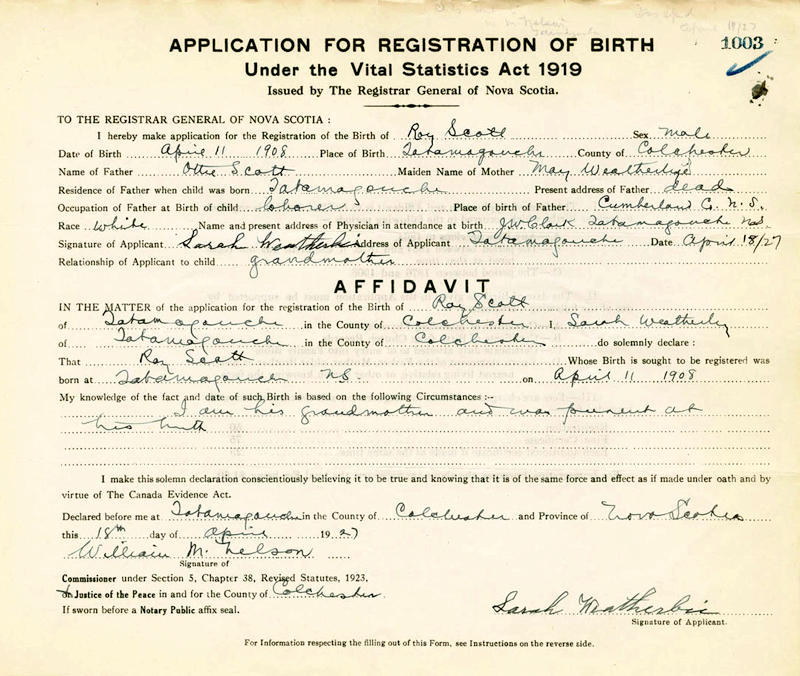 APPLICATION FOR REGISTRATION OF BIRTH 1003
Under the Vital Statistics Act 1919
Issued by The Registrar General of Nova Scotia.
TO THE REGISTRAR GENERAL OF NOVA SCOTIA :
I hereby make application for the Registration of the Birth of Roy Scott Sex Male
Date of Birth April 11 1908 Place of Birth Tatamagouche County of Colchester
Name of Father Ottie Scott Maiden Name of Mother May Weatherbie
Residence of Father when child was born Tatamagouche Present address of Father dead
Occupation of Father at Birth of child laborer Place of birth of Father Cumberland Co. N. S.
Race White Name and present address of Physician in attendance at birth J.W. Clark Tatamagouche N.S.
Signature of Applicant Sarah Weatherbie Address of Applicant Tatamagouche Date April 18/27
Relationship of Applicant to child grandmother
AFFIDAVIT
IN THE MATTER of the application for the registration of Birth of Roy Scott
of Tatamagouche in the County of Colchester I, Sarah Weatherby
of Tatamagouche in the County of Colchester do solemnly declare :
That Roy Scott Whose Birth is sought to be registered was
born at Tatamagouche N.S. on April 11 1908
My knowledge of the fact and date of such Birth is based on the following Circumstances :-
I am his grandmother and was present at
his birth
I make this solemn declaration conscientiously believing it to be true and knowing that it is of the same force and effect as if made under oath and by
virtue of The Canada Evidence Act.
Declared before me at Tatamagouche in the County of Colchester and Province of Nova Scotia
this 18th day of April 1927
William M. Nelson
Signature of
Commissioner under Section 5, Chapter 38, Revised Statutes, 1923.
Justice of the Peace in and for the County of Colchester.
If sworn before a Notary Public affix seal.
Sarah Weatherbie
Signature of Applicant.
For Information respecting the filling out of this Form, see Instructions on the reverse side.